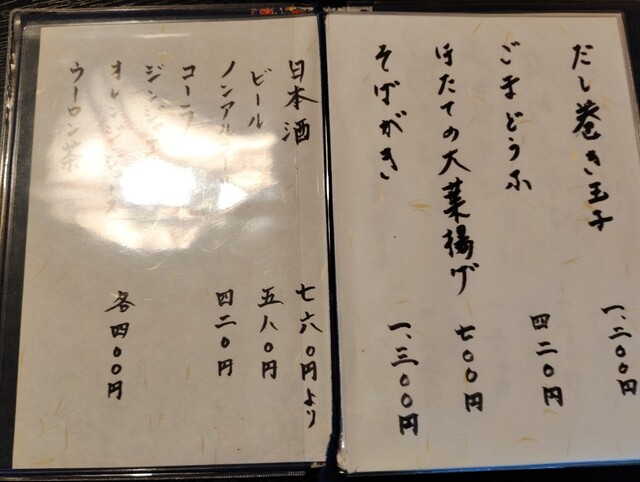 だし巻き玉子 一、二〇〇円
ごまどうふ 四二〇円
ほたての大葉揚げ 七〇〇円
そばがき 一、三〇〇円
日本酒 七六〇円より
ビール 五八〇円
ノンアルコール 四二〇円
コーラ
ジンジャー
オレンジジュース 各四〇〇円
ウーロン茶